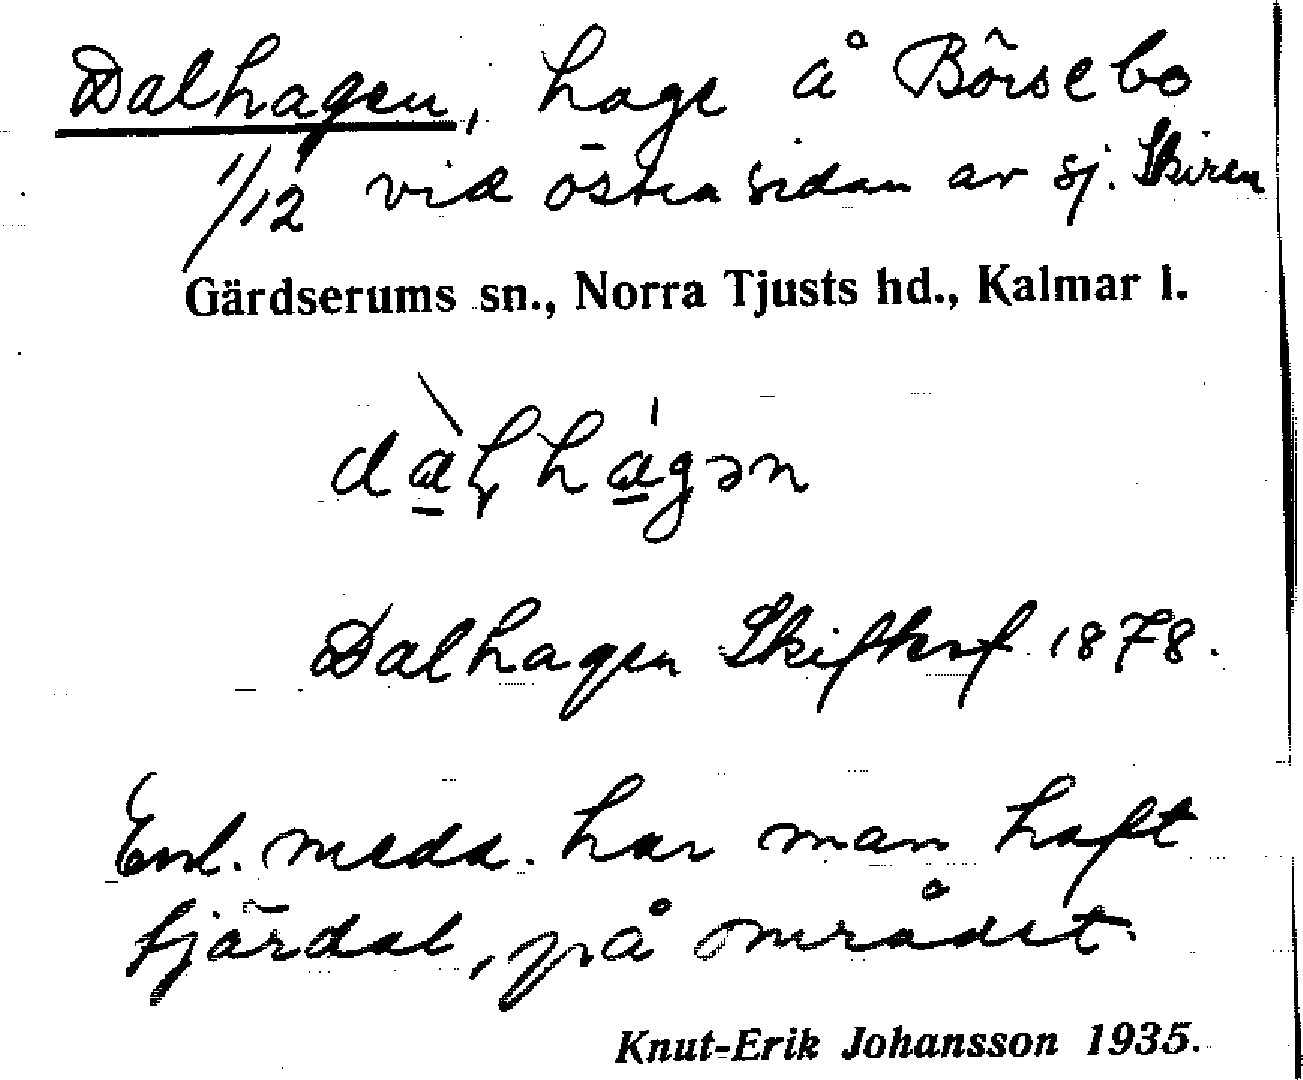 Dalhagen, hage å Börsebo
1/12 vid östra sidan av sj. Skiren
Gärdserums sn., Norra Tjusts hd., Kalmar l.
Dalhagen Skifteskf 1878.
Enl. medd. har man haft
tjärdal, på området.
Knut-Erik Johansson 1935.